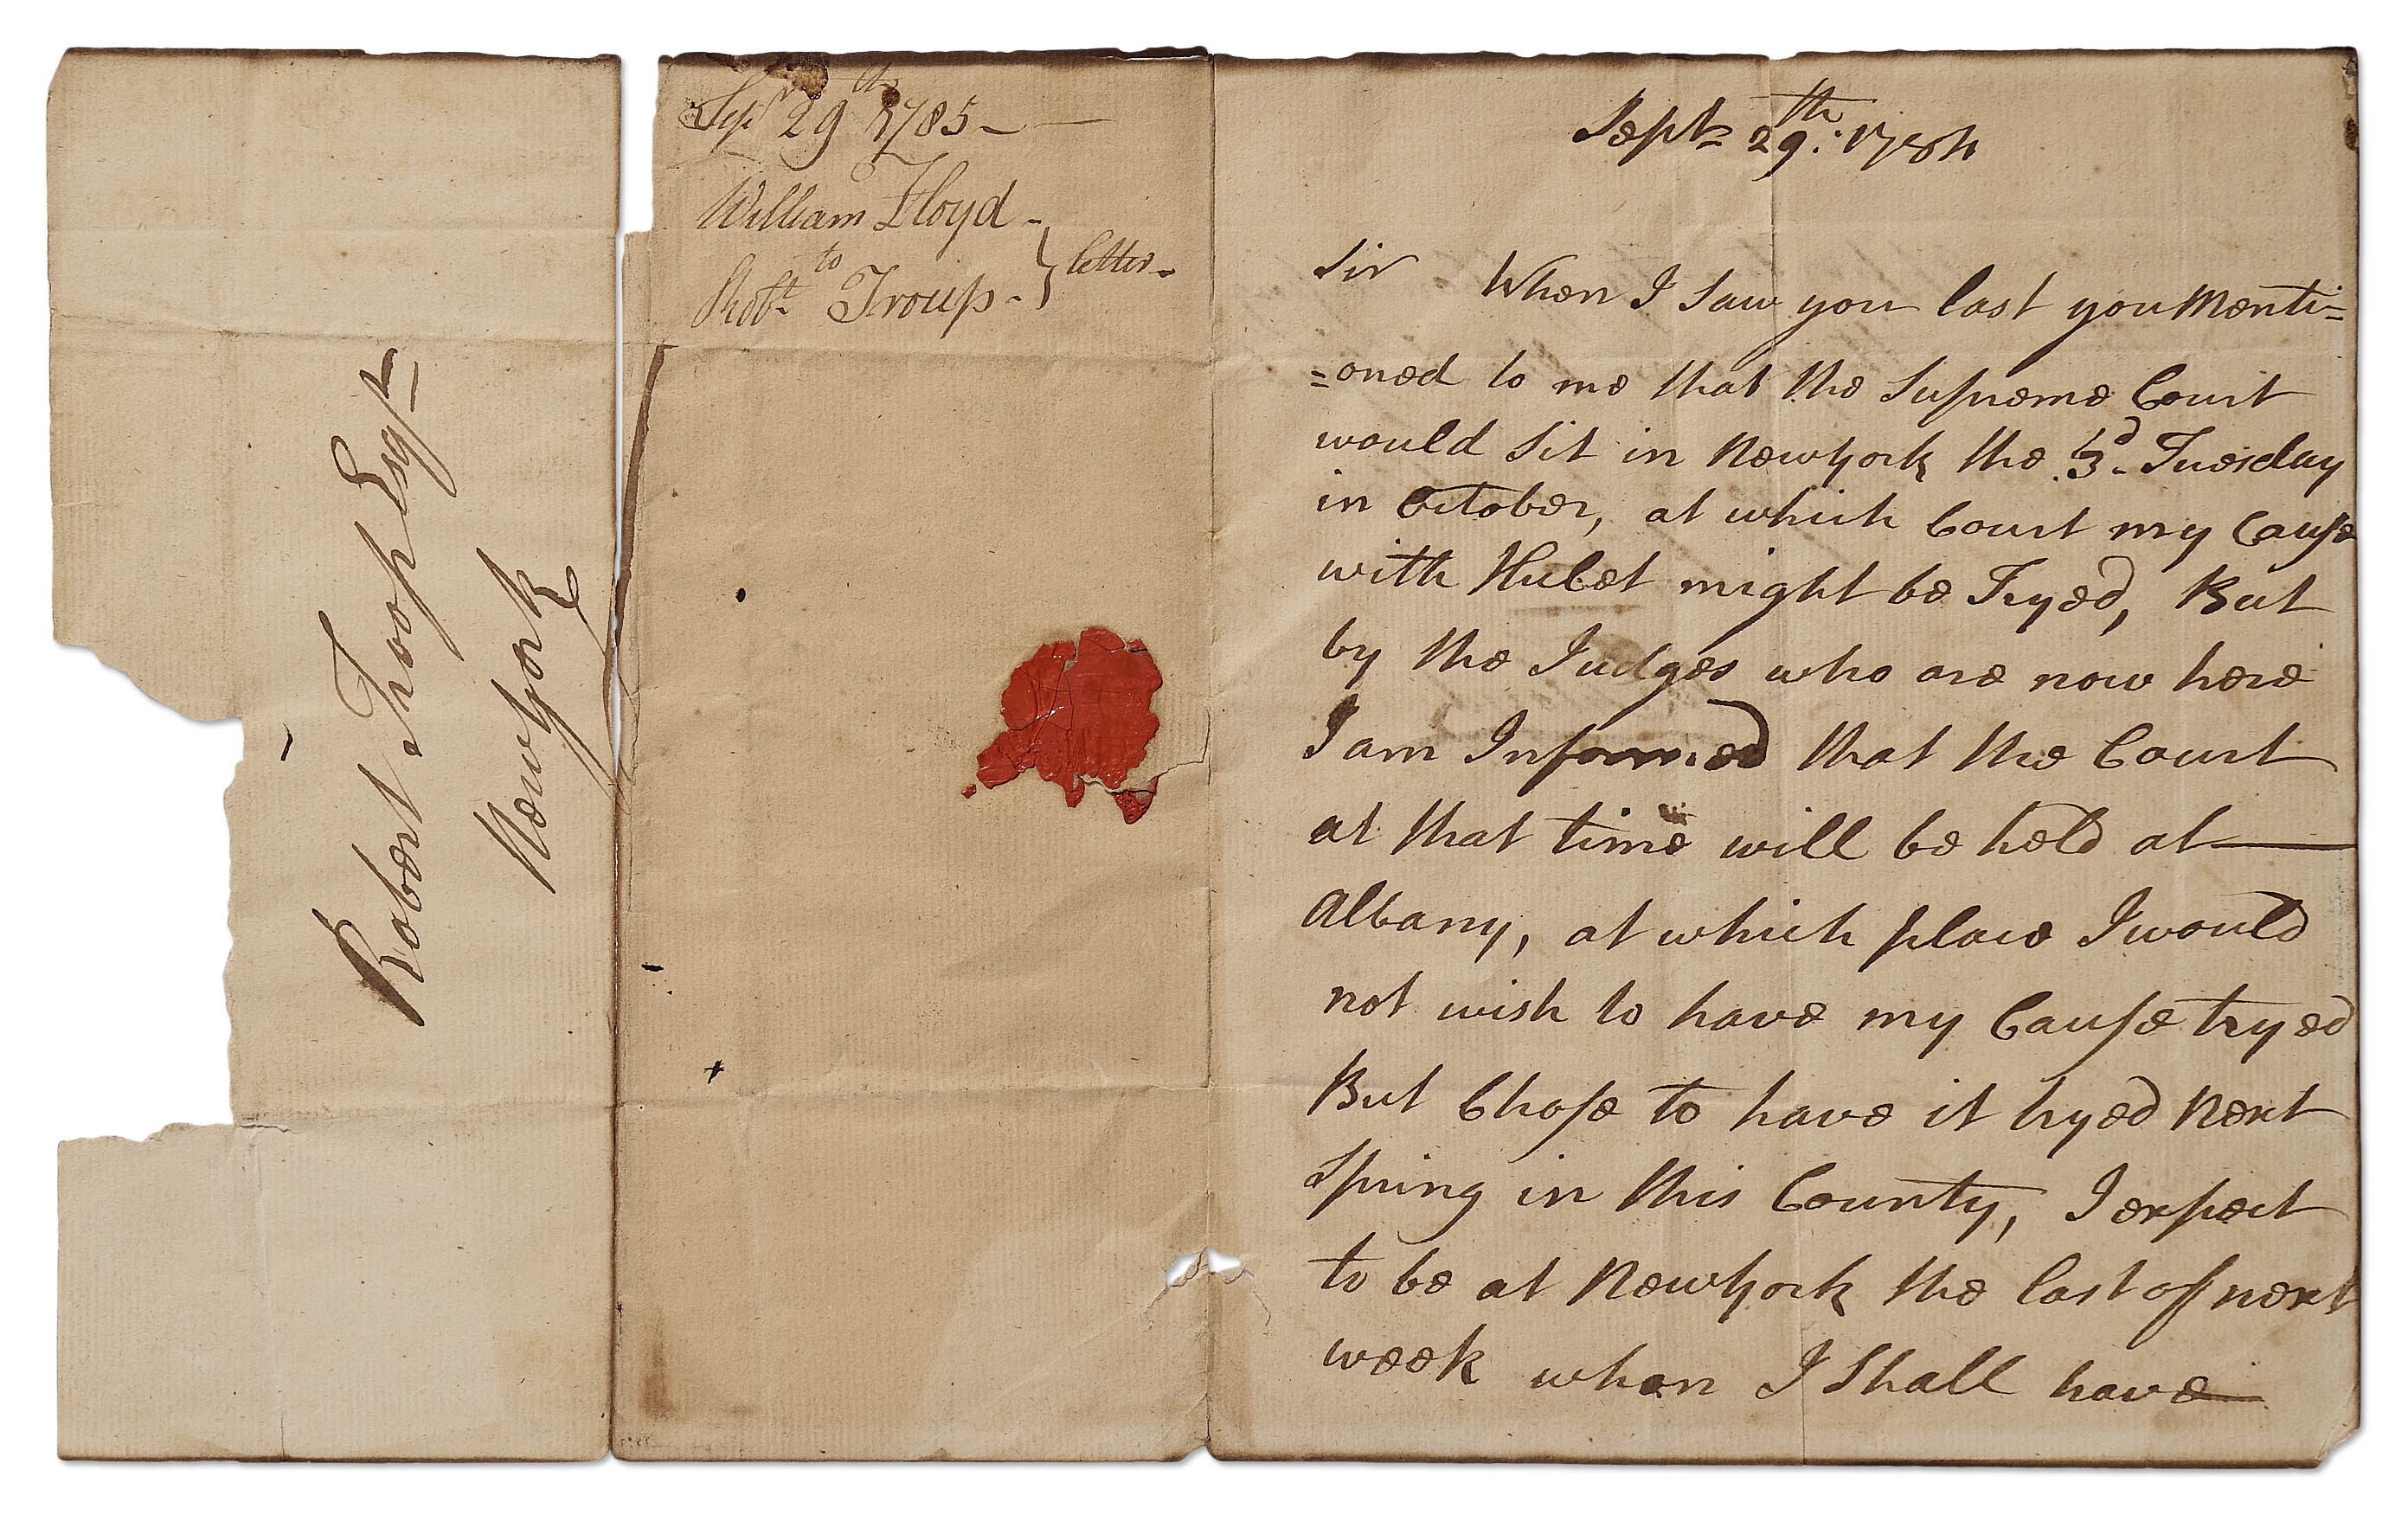 Robert Troop Esqr
New York
Sepr 29th 1785 -
William Floyd -
to
Robt Troup - } letter -
Septr 29th: 1784
Sir When I Saw you last you Menti=
=oned to me that the Supreme Court
would Sit in New York the 3d Tuesday
in October, at which Court my Cause
with Hulet might be Tryed, But
by the Judges who are now here
I am Informed that the Court
at that time will be held at
Albany, at which place I would
not wish to have my Cause tryed
But Chose to have it tryed Next
Spring in this County, I expect
to be at New York the last of next
week when I Shall have